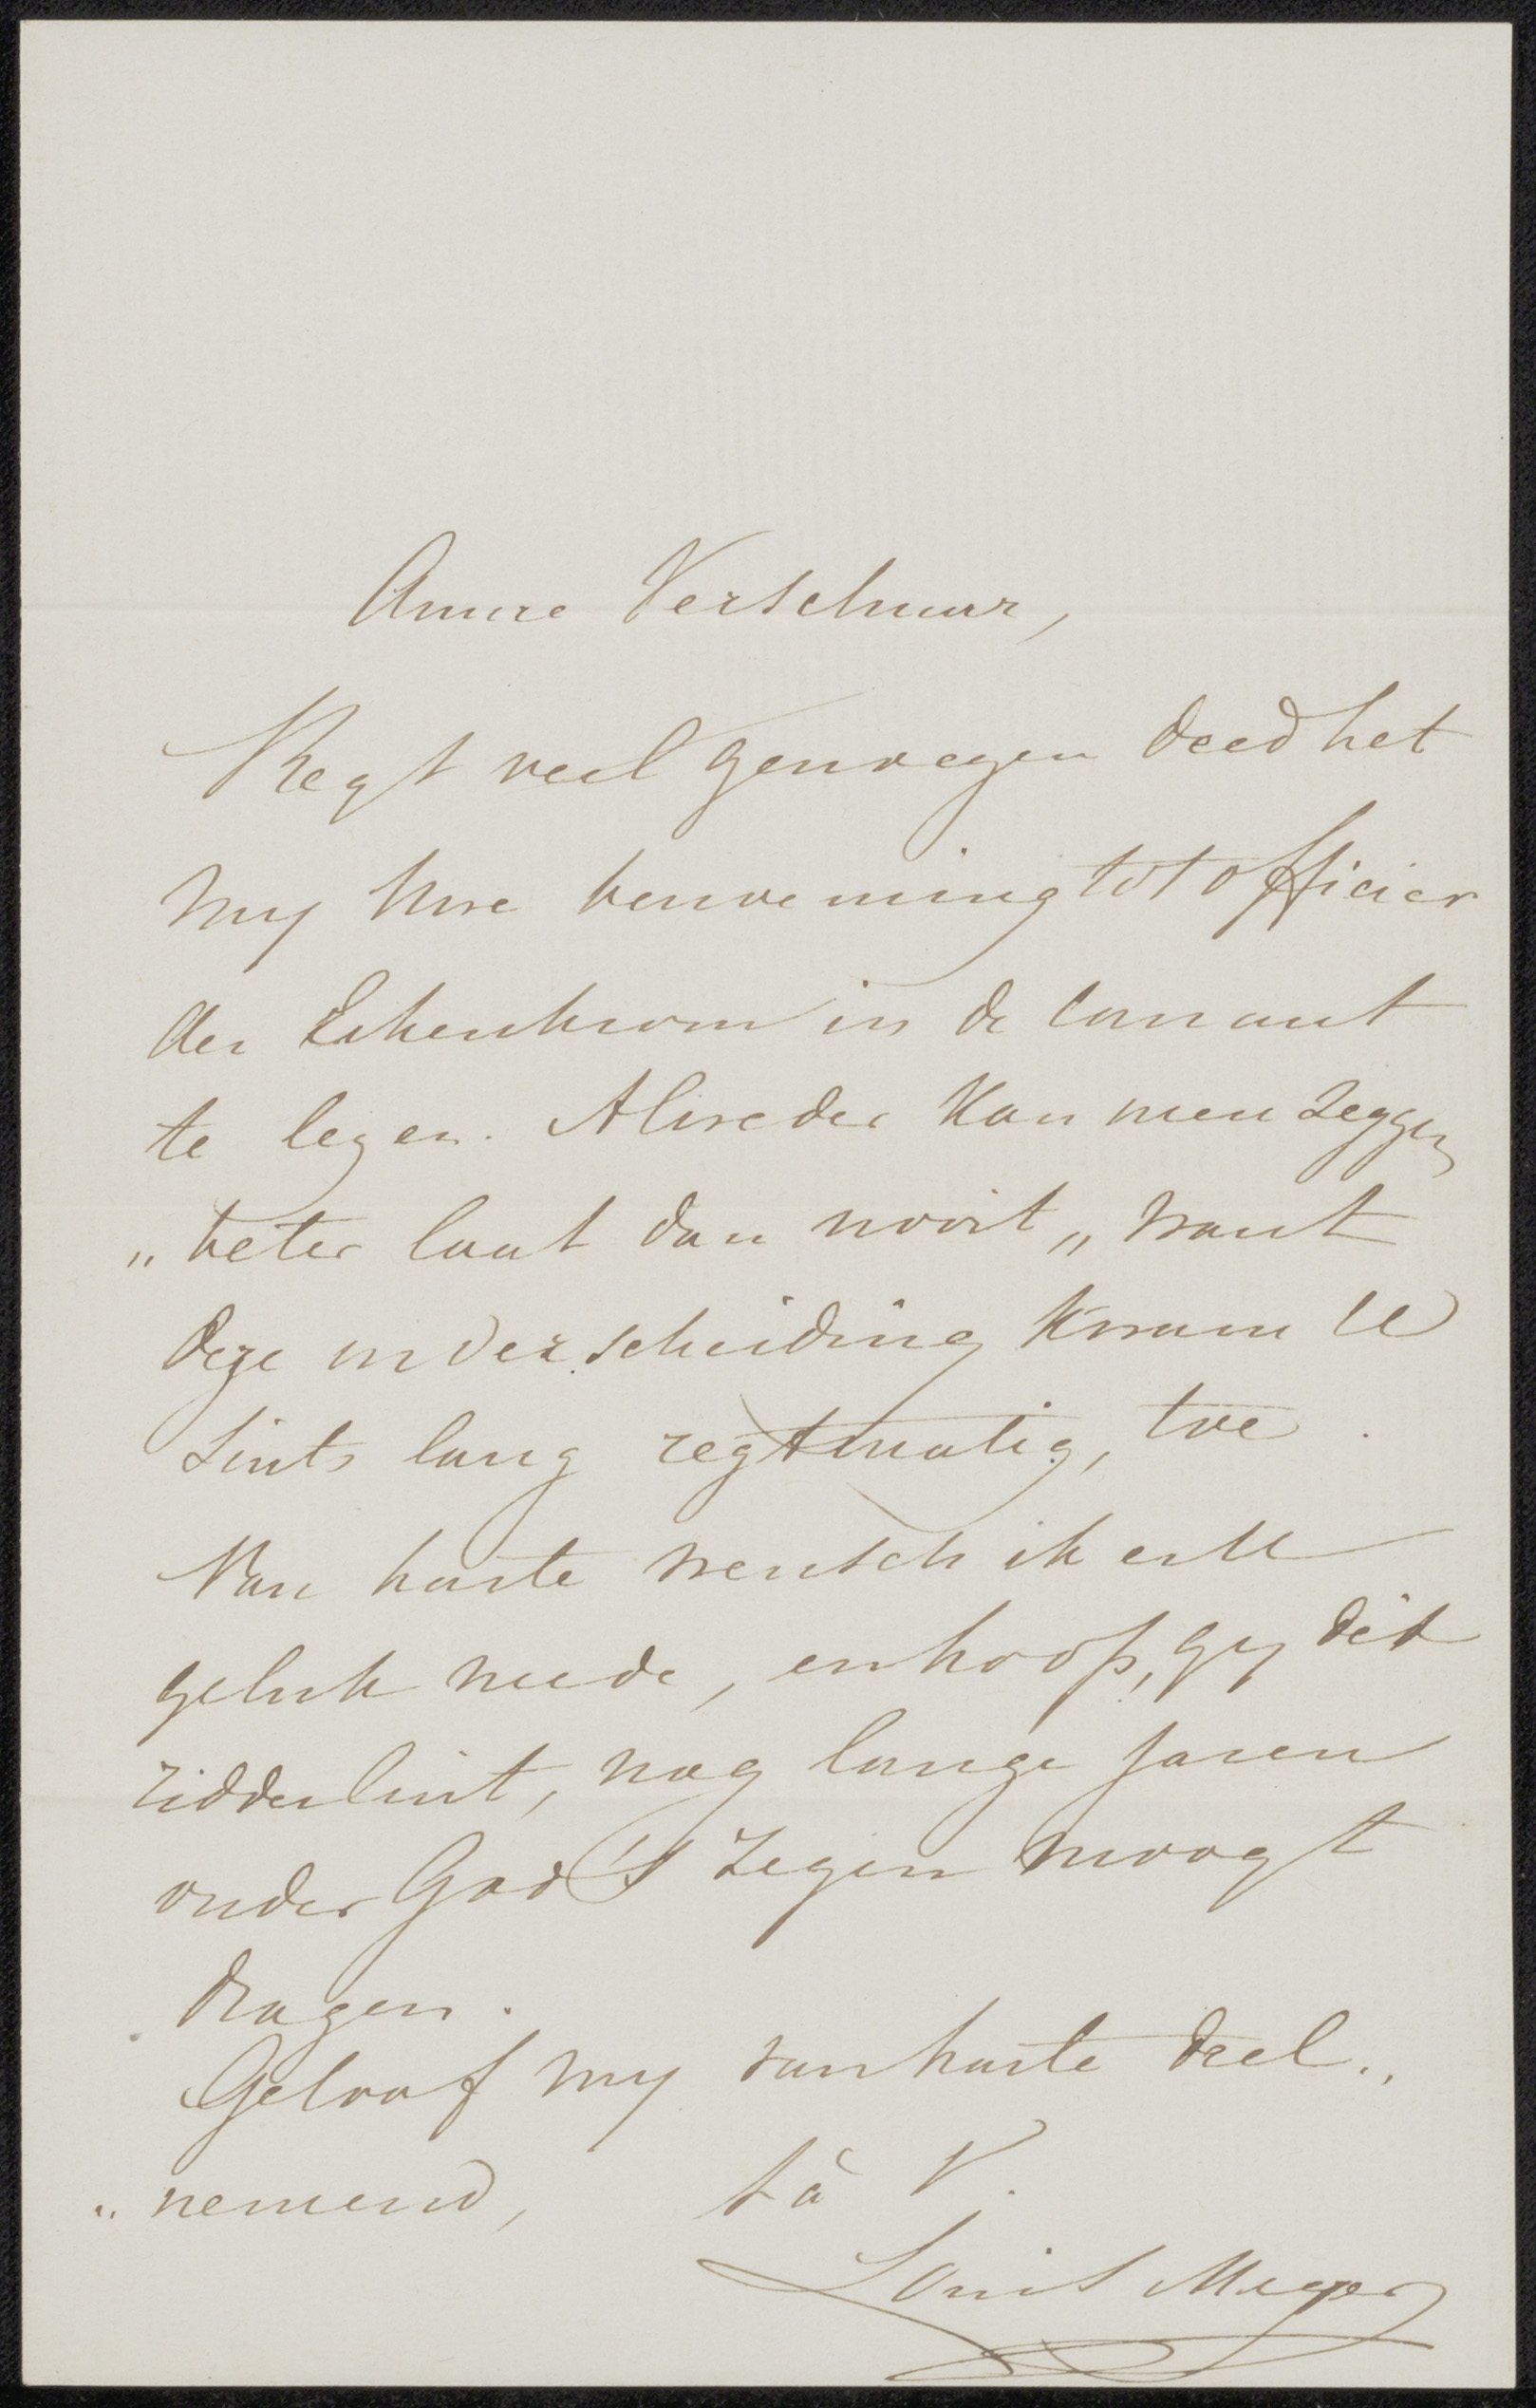 Amice Verschuur,
Regt veel genoegen deed het
my Uwe benoeming tot officier
der Eikenkroon in de Courant
te lezen. Alweder kan men zeggen
„ beter laat dan nooit „ want
deze onderscheiding kwam U
sints lang regtmatig, toe.
Van harte wensch ik er U
geluk mede, en hoop, gy dit
ridderlint, nog lange jaren
onder God's zegen moogt
dragen.
Geloof my van harte deel„
„nemend, tà V.
Louis Meyer